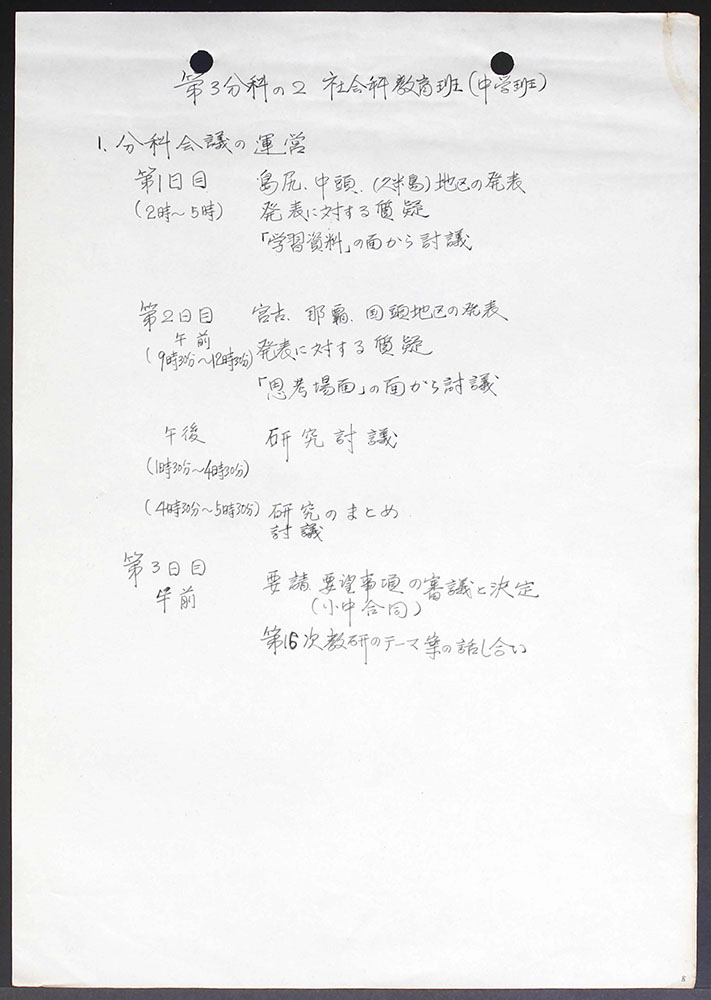 第3分科の2 社会科教育班(中学班)
1. 分科会議の運営
第1日目 島尻、中頭、(久米島)地区の発表
(2時~5時) 発表に対する質疑
「学習資料」の面から討議
第2日目 宮古、那覇、国頭地区の発表
午前
(9時30分~12時30分) 発表に対する質疑
「思考場面」の面から討議
午後 研究討議
(1時30分~4時30分)
(4時30分~5時30分) 研究のまとめ
討議
第3日目 要請、要望事項の審議と決定
午前 (小中合同)
第16次教研のテーマ案の話し合い
8